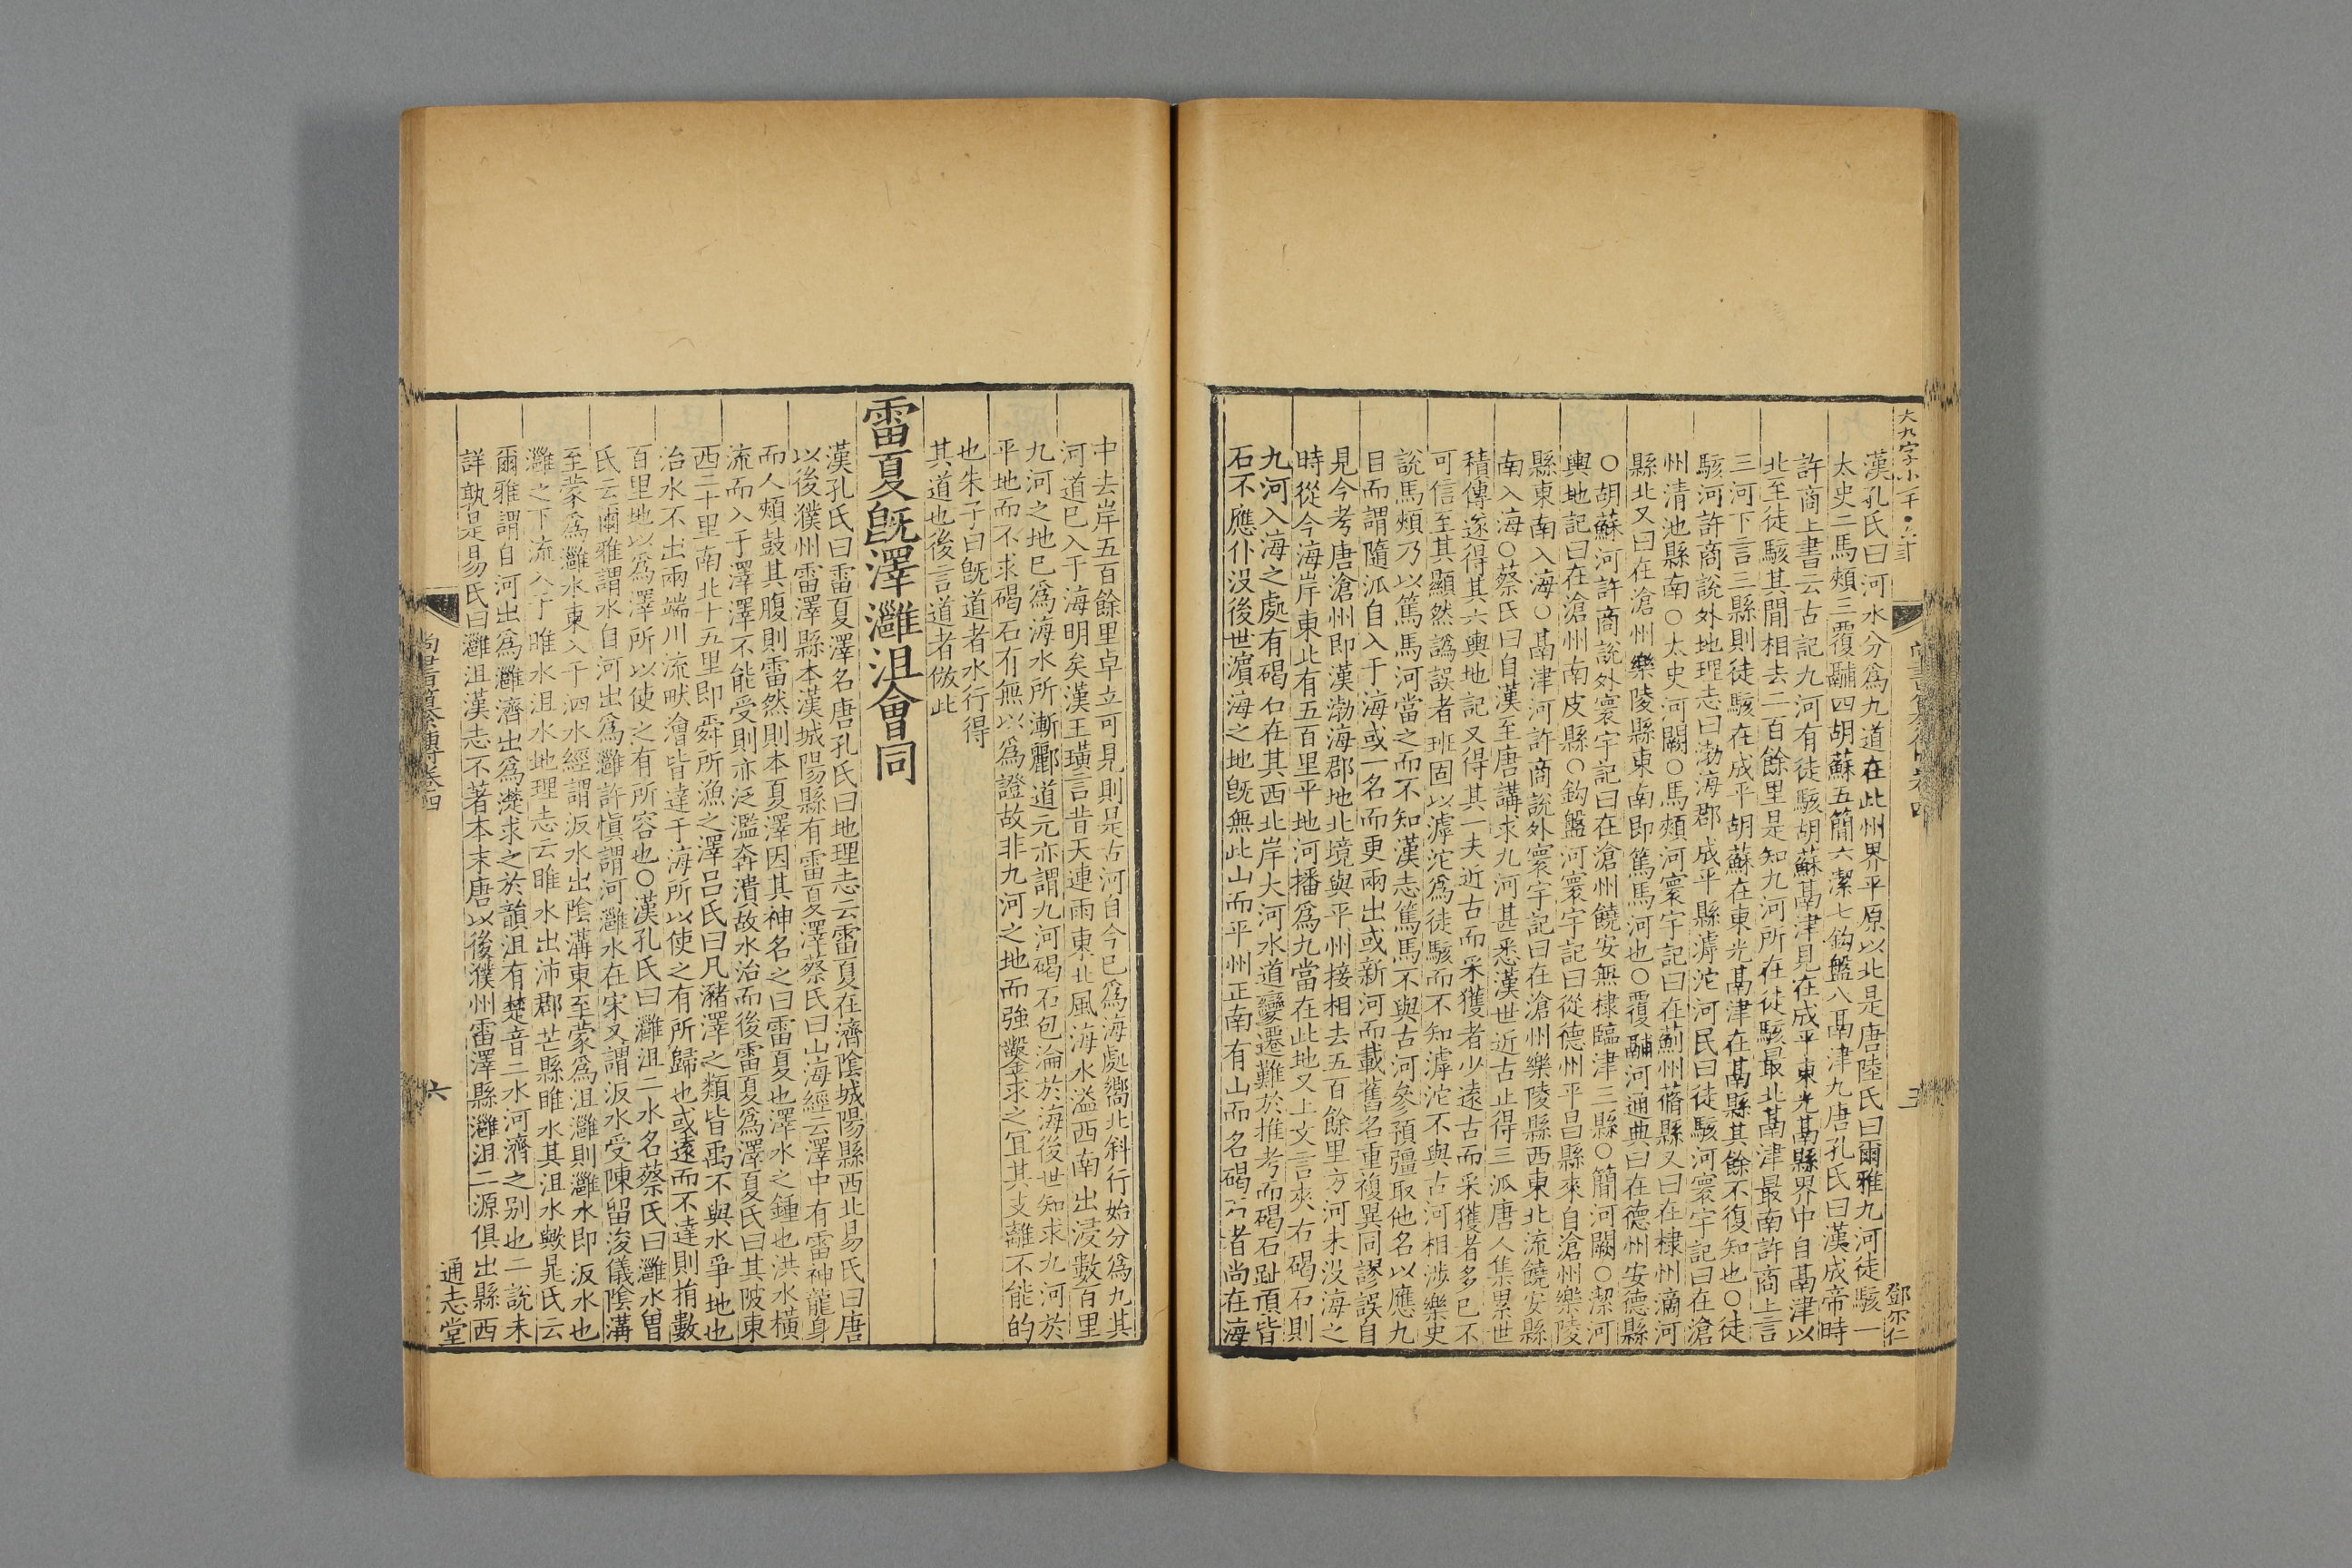 漢孔氏曰河水分為九道在此州界平原以北是唐陸氏曰爾雅九河徒駭一
太史二馬頰三覆鬴四胡蘇五簡六潔七鉤盤八鬲津九唐孔氏曰漢成帝時
許商上書云古記九河有徒駭胡蘇鬲津見在成平東光鬲縣界中自鬲津以
北至徒駭其間相去二百餘里是知九河所在徒駭最北鬲津最南許商上言
三河下言三縣則徒駭在成平胡蘇在東光鬲津在鬲縣其餘不復知也○徒
駭河許商說外地理志曰渤海郡成平縣滹沱河民曰徒駭河寰宇記曰在滄
州清池縣南○太史河闕○馬頰河寰宇記曰在薊州蓨縣又曰在棣州滴河
縣北又曰在滄州樂陵縣東南即篤馬河也○覆鬴河通典曰在德州安德縣
○胡蘇河許商說外寰宇記曰在滄州饒安無棣臨津三縣○簡河闕○潔河
輿地記曰在滄州南皮縣○鈎盤河寰宇記曰從德州平昌縣來自滄州樂陵
縣東南入海○鬲津河許商說外寰宇記曰在滄州樂陵縣西東北流饒安縣
南入海○蔡氏曰自漢至唐講求九河甚悉漢世近古止得三派唐人集累世
積傳遂得其六輿地記又得其一夫近古而采獲者少遠古而采獲者多已不
可信至其顯然譌誤者班固以滹沱為徒駭而不知滹沱不與古河相涉樂史
說馬頰乃以篤馬河當之而不知漢志篤馬不與古河參預彊取他名以應九
目而謂隨派自入于海或一名而更兩出或新河而載舊名重複異同謬誤自
見今考唐滄州即漢渤海郡地北境與平州接相去五百餘里方河未没海之
時從今海岸東北有五百里平地河播為九當在此地又上文言夾右碣石則
九河入海之處有碣石在其西北岸大河水道變遷難於推考而碣石趾頂皆
石不應仆没後世濵海之地旣無此山而平州正南有山而名碣石者尚在海
鄧尔仁
中去岸五百餘里卓立可見則是古河自今已為海處嚮北斜行始分為九其
河道已入于海明矣漢王璜言昔天連雨東北風海水溢西南出浸數百里
九河之地已為海水所漸酈道元亦謂九河碣石苞淪於海後世知求九河於
平地而不求碣石有無以為證故非九河之地而強鑿求之宜其支離不能的
也朱子曰旣道者水行得
其道也後言道者倣此
雷夏旣澤灉沮會同
漢孔氏曰雷夏澤名唐孔氏曰地理志云雷夏在濟陰城陽縣西北易氏曰唐
以後濮州雷澤縣本漢城陽縣有雷夏澤蔡氏曰山海經云澤中有雷神龍身
而人頰鼓其腹則雷然則本夏澤因其神名之曰雷夏也澤水之鍾也洪水橫
流而入于澤澤不能受則亦泛濫奔潰故水治而後雷夏為澤夏氏曰其陂東
西二十里南北十五里即舜所漁之澤呂氏曰凡瀦澤之類皆禹不與水爭地也
治水不出兩端川流畎澮皆達于海所以使之有所歸也或遠而不達則捐數
百里地以為澤所以使之有所容也○漢孔氏曰灉沮二水名蔡氏曰灉水曽
氏云爾雅謂水自河出為灉許慎謂河灉水在宋又謂汳水受陳留浚儀陰溝
至蒙為灉水東入于泗水經謂汳水出陰溝東至蒙為沮灉則灉水即汳水也
灉之下流入于睢水沮水地理志云睢水出沛郡芒縣睢水其沮水歟晁氏云
爾雅謂自河出為灉濟出為濋求之於韻沮有楚音二水河濟之别也二說未
詳孰是易氏曰灉沮漢志不著本末唐以後濮州雷澤縣灉沮二源俱出縣西
尚書纂傳卷四
六
通志堂